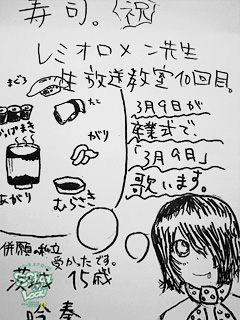 寿司。祝
レミオロメン先生
生放送教室10回目。
まぐろ
たこ
かっぱまき
がり
あがり
むらさき
3月9日が
卒業式で、
「3月9日」
歌います。
併願の私立
受かたです。
15歳